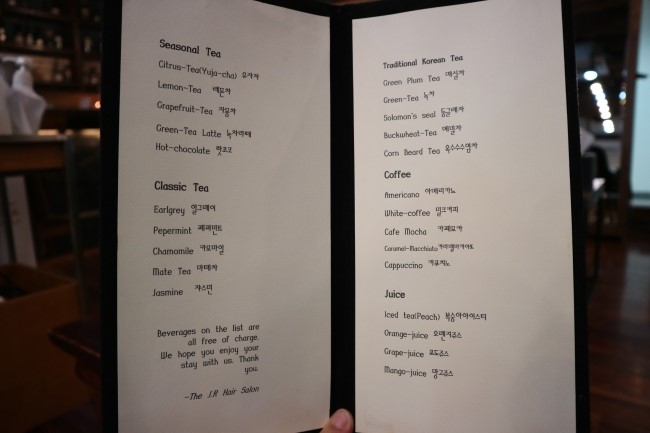 Seasonal Tea
Citrus-Tea(Yuja-cha) 유자차
Lemon-Tea 레몬차
Grapefruit-Tea 자몽차
Green-Tea Latte 녹차라떼
Hot-chocolate 핫초코
Classic Tea
Earlgrey 얼그레이
Pepermint 페퍼민트
Chamomile 카모마일
Mate Tea 마테차
Jasmine 쟈스민
Beverages on the list are
all free of charge.
We hope you enjoy your
stay with us. Thank
you.
-The J.R Hair Salon
Traditional Korean Tea
Green Plum Tea 매실차
Green-Tea 녹차
Solomon's seal 둥글레차
Buckwheat-Tea 메밀차
Corn Beard Tea 옥수수수염차
Coffee
Americano 아메리카노
White-coffee 밀크커피
Cafe Mocha 카페모카
Caramel-Macchiato 카라멜마키아토
Cappuccino 카푸치노
Juice
Iced tea(Peach) 복숭아아이스티
Orange-juice 오렌지쥬스
Grape-juice 포도쥬스
Mango-juice 망고쥬스